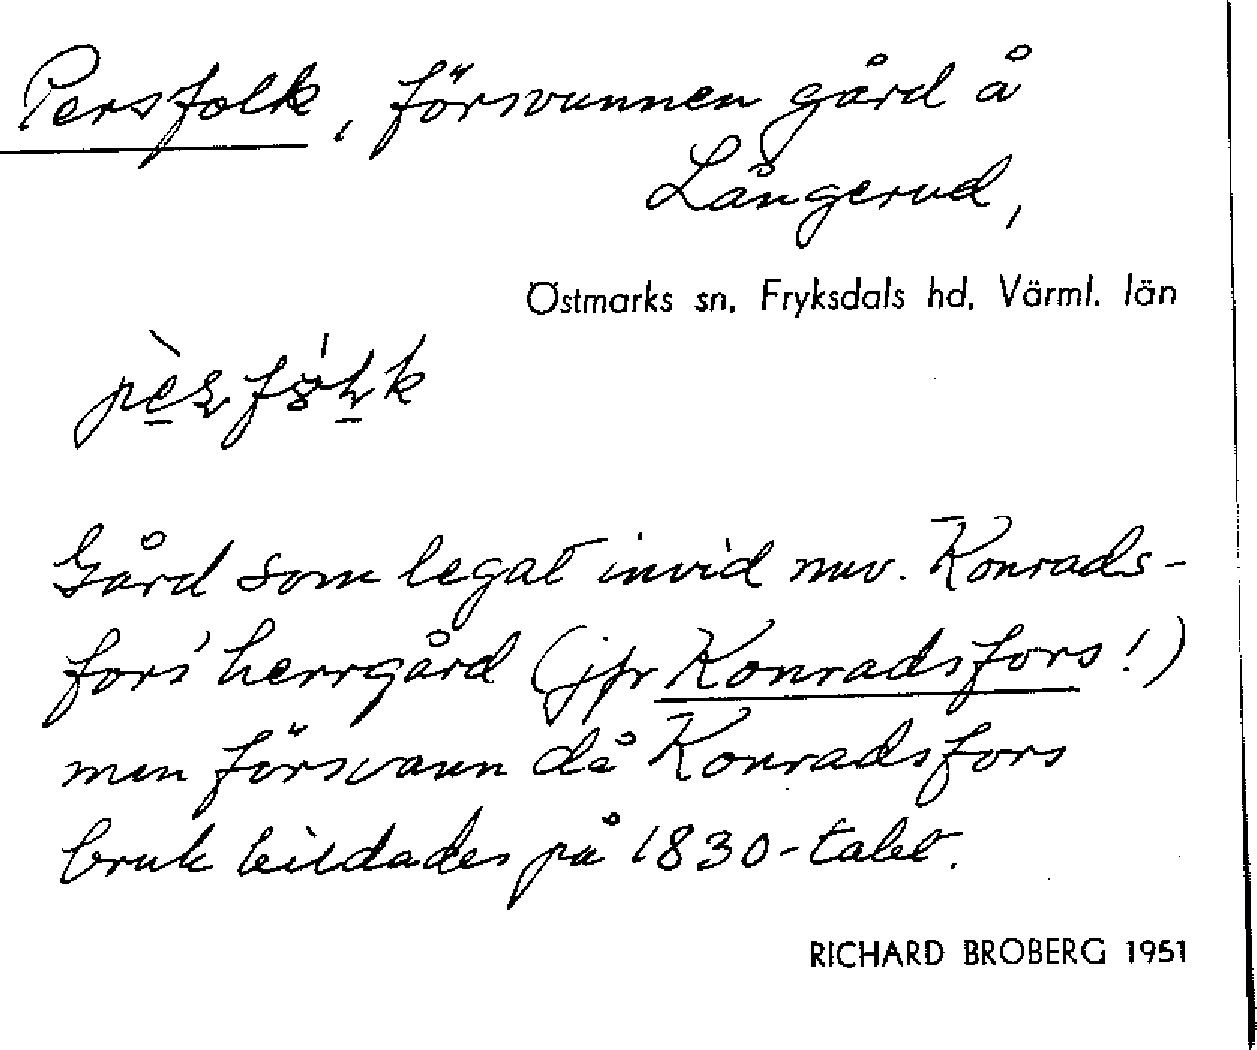 Persfolk, försvunnen gård å
Långerud,
Östmarks sn. Fryksdals hd. Värml. län
Gård som legat invid nuv. Konrads-
fors' herrgård (jfr Konradsfors!)
men försvann då Konradsfors
bruk bildades på 1830-talet.
RICHARD BROBERG 1951